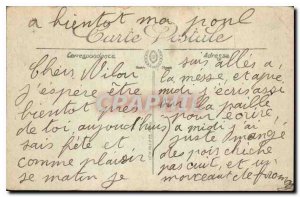 a bientot ma popl
Carte Postale
Correspondance
Adresse
Cheri Wilou
j'espère être
bientot près
de toi, aujourd'huis
sais fête et
comme plaisir
se matin je
suis allés a
la messe, et apre
mudi j'ecris assi
sur la paille
pour ecrire
a midi j'ai
juste mangé
des pois chiche
pas cuit, et un
morceaut de from